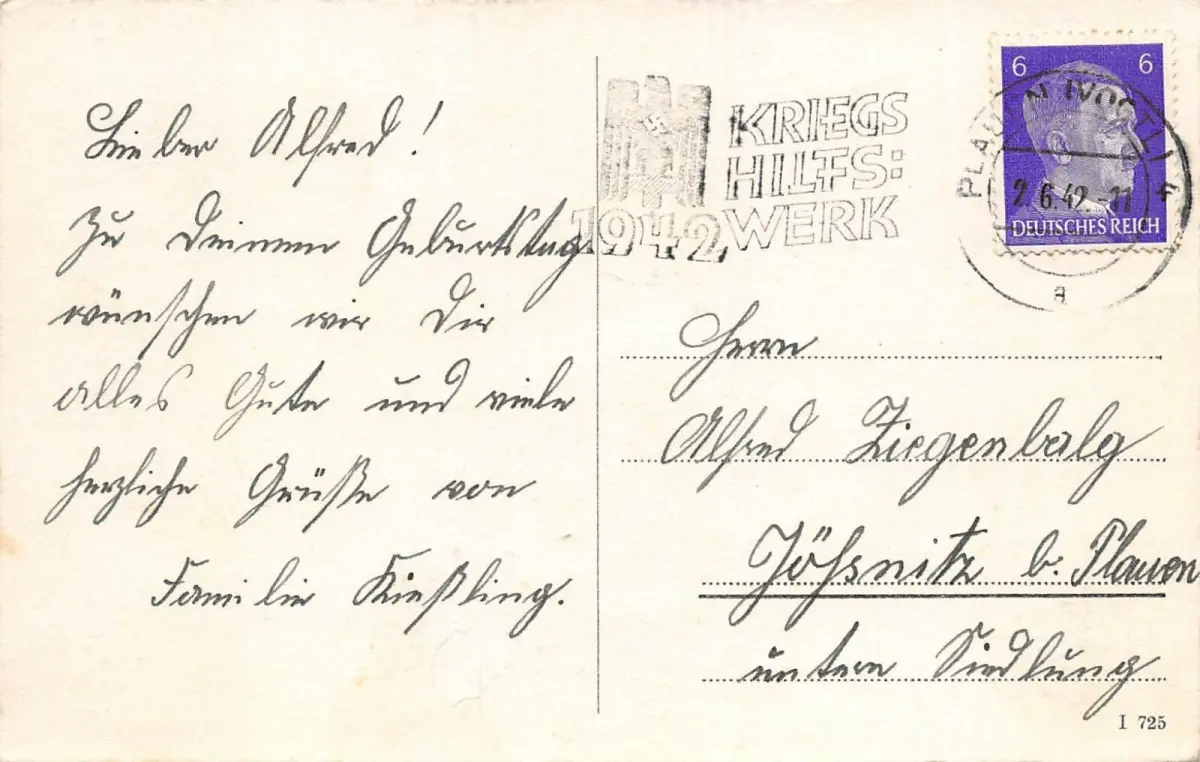 Lieber Alfred!
Zu Deinem Geburtstag
wünschen wir Dir
alles Gute und viele
herzliche Grüße von
Familie Kießling.
KRIEGS
HILFS:
1942 WERK
6 6
PLAUEN (VOGTL) 
2.6.42.-11
DEUTSCHES REICH
a
Herrn
Alfred Ziegenbalg
Jößnitz b. Plauen
untere Siedlung
I 725